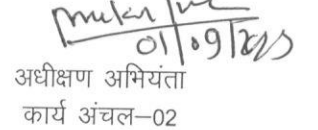 01/09/2023
अधीक्षण अभियंता
कार्य अंचल–02